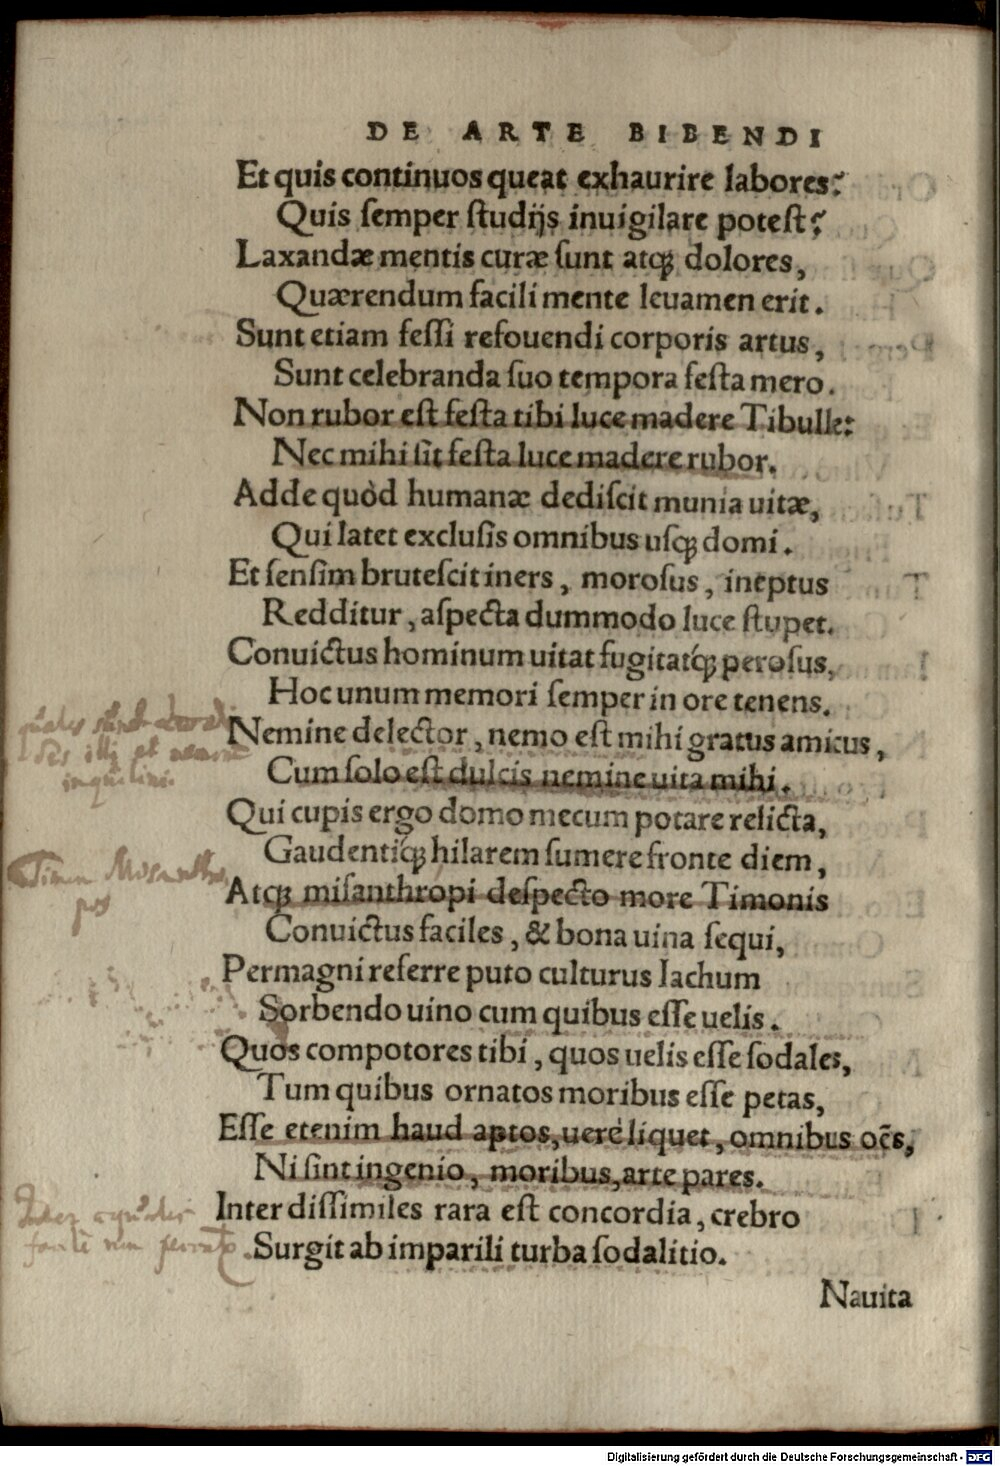 DE ARTE BIBENDI
Et quis continuos queat exhaurire labores?
Quis semper studijs inuigilare potest?
Laxandæ mentis curæ sunt atq; dolores,
Quærendum facili mente leuamen erit.
Sunt etiam fessi refouendi corporis artus,
Sunt celebranda suo tempora festa mero.
Non rubor est festa tibi luce madere Tibulle:
Nec mihi sit festa luce madere rubor.
Adde quòd humanæ dediscit munia uitæ,
Qui latet exclusis omnibus usq; domi.
Et sensim brutescit iners, morosus, ineptus
Redditur, aspecta dummodo luce stupet.
Conuictus hominum uitat fugitatq́; perosus,
Hoc unum memori semper in ore tenens.
Nemine delector, nemo est mihi gratus amicus,
Cum solo est dulcis nemine uita mihi.
Qui cupis ergo domo mecum potare relicta,
Gaudentiq́; hilarem sumere fronte diem,
Timon Misanthro
pos
Atq; misanthropi despecto more Timonis
Conuictus faciles, & bona uina sequi,
Permagni referre puto culturus Iachum
Sorbendo uino cum quibus esse uelis.
Quos compotores tibi, quos uelis esse sodales,
Tum quibus ornatos moribus esse petas,
Esse etenim haud aptos, uerè liquet, omnibus oẽs,
Ni sint ingenio, moribus, arte pares.
Inter dissimiles rara est concordia, crebro
Surgit ab imparili turba sodalitio.
Nauita
Digitalisierung gefördert durch die Deutsche Forschungsgemeinschaft - DFG